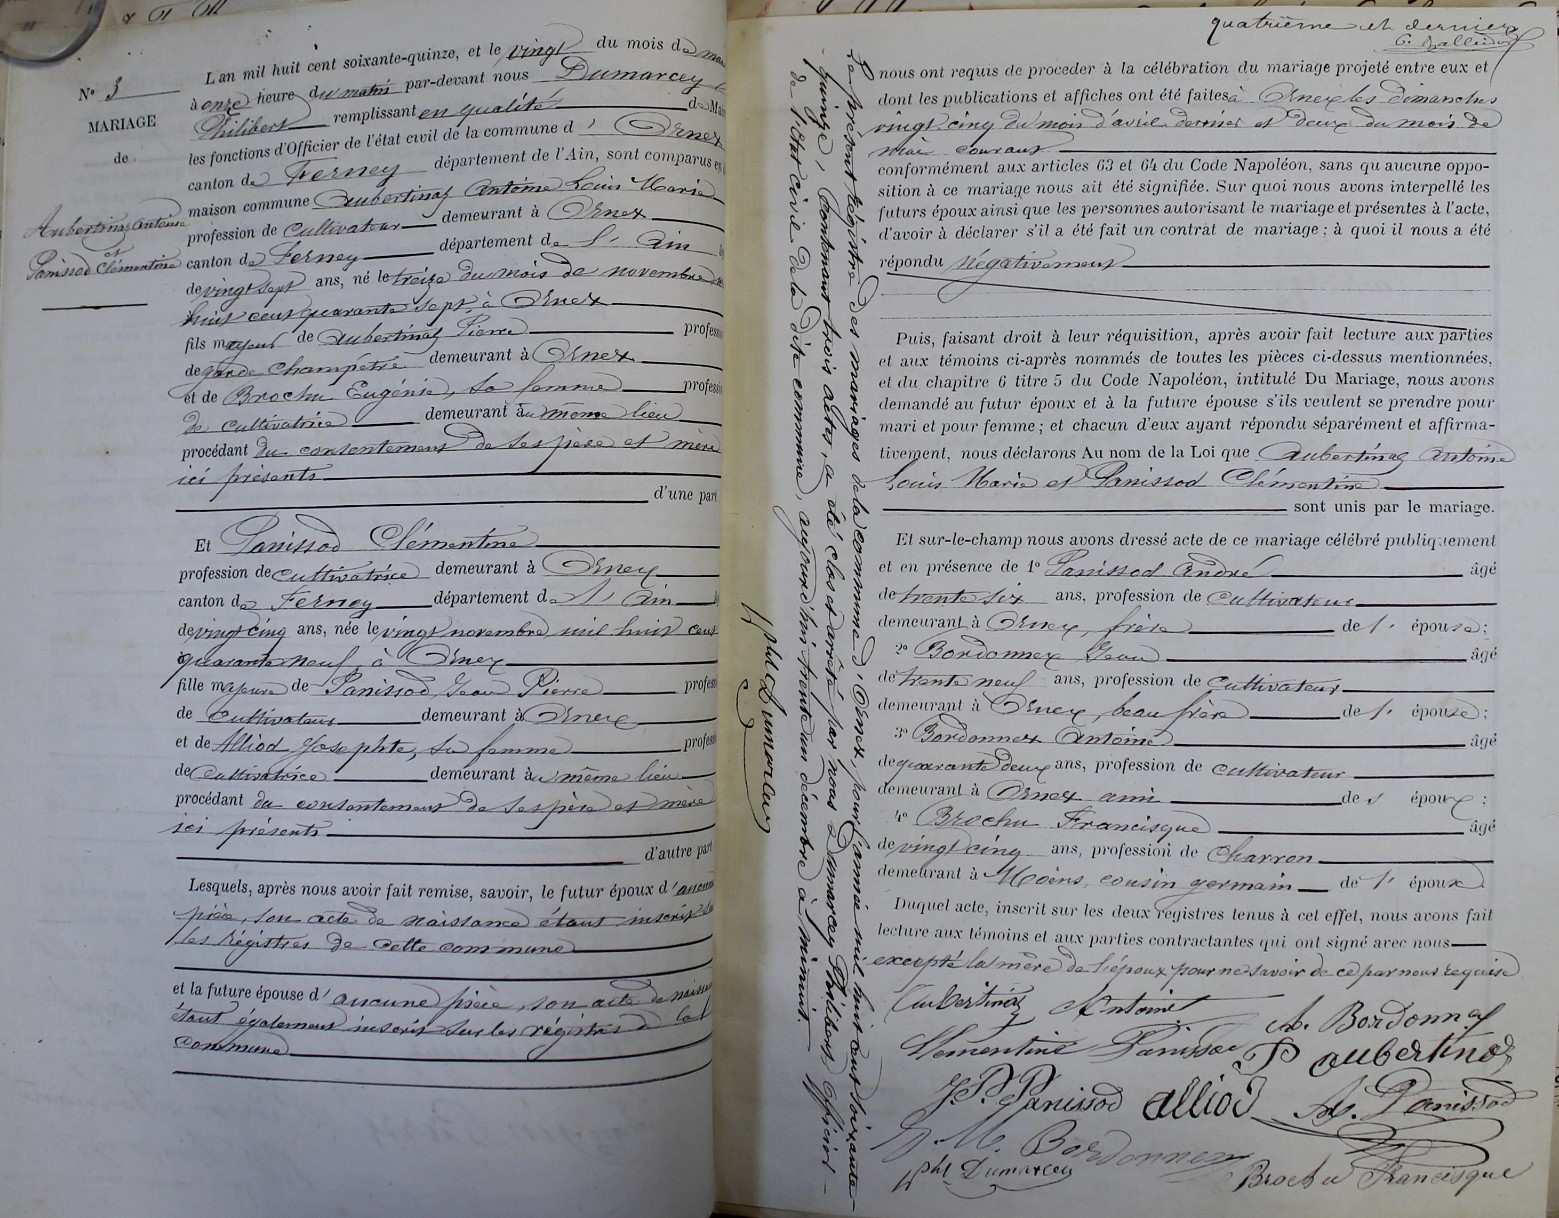 N° 3
MARIAGE
de
Aubertinaz Antoine
et
Panissod Clémentine
L an mil huit cent soixante-quinze, et le vingt du mois de mai
à onze heure du matin par-devant nous Dumarcey
Philibert remplissant en qualité de Maire
les fonctions d'Officier de l'état civil de la commune d' Ornex
canton de Ferney département de l'Ain, sont comparus en
maison commune Aubertinaz Antoine Louis Marie
profession de cultivateur demeurant à Ornex
canton de Ferney département de l' Ain
de vingt sept ans, né le treize du mois de novembre
huit cent quarante sept à Ornex
fils majeur de Aubertinaz Pierre profess
de garde champêtre demeurant à Ornex
et de Brochu Eugénie, sa femme profess
de cultivatrice demeurant au même lieu
procédant du consentement de ses père et mère
ici présents
d'une part
Et Panissod Clémentine
profession de cultivatrice demeurant à Ornex
canton de Ferney département de l' Ain
de vingt cinq ans, née le vingt novembre mil huit cent
quarante neuf, à Ornex
fille majeure de Panissod Jean Pierre profess
de cultivateur demeurant à Ornex
et de Alliod Josephte, sa femme profess
de cultivatrice demeurant au même lieu
procédant du consentement de ses père et mère
ici présents
d'autre part
Lesquels, après nous avoir fait remise, savoir, le futur époux d'aucune
pièce, son acte de naissance étant inscrit sur
les régistres de cette commune
et la future épouse d' aucune pièce, son acte de naiss
étant également inscrit sur les régistres de la
commune
Le présent régistre des mariages de la commune d'Ornex, pour l'année mil huit cent soixante-
quinze, contenant trois actes, a été clos et arrêté par nous Dumarcey Philibert officier
de l'état civil de la dite commune, aujourd'hui trente un décembre à minuit
phd Dumarcey
quatrième et dernier
nous ont requis de proceder à la célébration du mariage projeté entre eux et
dont les publications et affiches ont été faites à Ornex les dimanches
vingt cinq du mois d'avril dernier et deux du mois de
mai courant
conformément aux articles 63 et 64 du Code Napoléon, sans qu aucune oppo-
sition à ce mariage nous ait été signifiée. Sur quoi nous avons interpellé les
futurs époux ainsi que les personnes autorisant le mariage et présentes à l'acte,
d'avoir à déclarer s'il a été fait un contrat de mariage ; à quoi il nous a été
répondu Négativement
Puis, faisant droit à leur réquisition, après avoir fait lecture aux parties
et aux témoins ci-après nommés de toutes les pièces ci-dessus mentionnées,
et du chapitre 6 titre 5 du Code Napoléon, intitulé Du Mariage, nous avons
demandé au futur époux et à la future épouse s'ils veulent se prendre pour
mari et pour femme ; et chacun d'eux ayant répondu séparément et affirma-
tivement, nous déclarons Au nom de la Loi que Aubertinaz Antoine
Louis Marie et Panissod Clémentine
sont unis par le mariage.
Et sur-le-champ nous avons dressé acte de ce mariage célébré publiquement
et en présence de 1° Panissod André âgé
de trente six ans, profession de cultivateur
demeurant à Ornex, frère de l' épouse ;
2° Bordonnex Jean âgé
de trente neuf ans, profession de cultivateur
demeurant à Ornex, beau frère de l' épouse ;
3° Bordonnex Antoine âgé
de quarante deux ans, profession de cultivateur
demeurant à Ornex ami de l' époux ;
4° Brochu Francisque âgé
de vingt cinq ans, profession de charron
demeurant à Moëns, cousin germain de l' époux
Duquel acte, inscrit sur les deux registres tenus à cet effet, nous avons fait
lecture aux témoins et aux parties contractantes qui ont signé avec nous
excepté la mère de l'époux pour ne savoir de ce par nous requise
Aubertinaz Antoine
A. Bordonnex
Clémentine Panissod
P aubertinaz
J. P. Panissod alliod
A. Panissod
J. M. Bordonnex
phd Dumarcey
Brochu Francisque